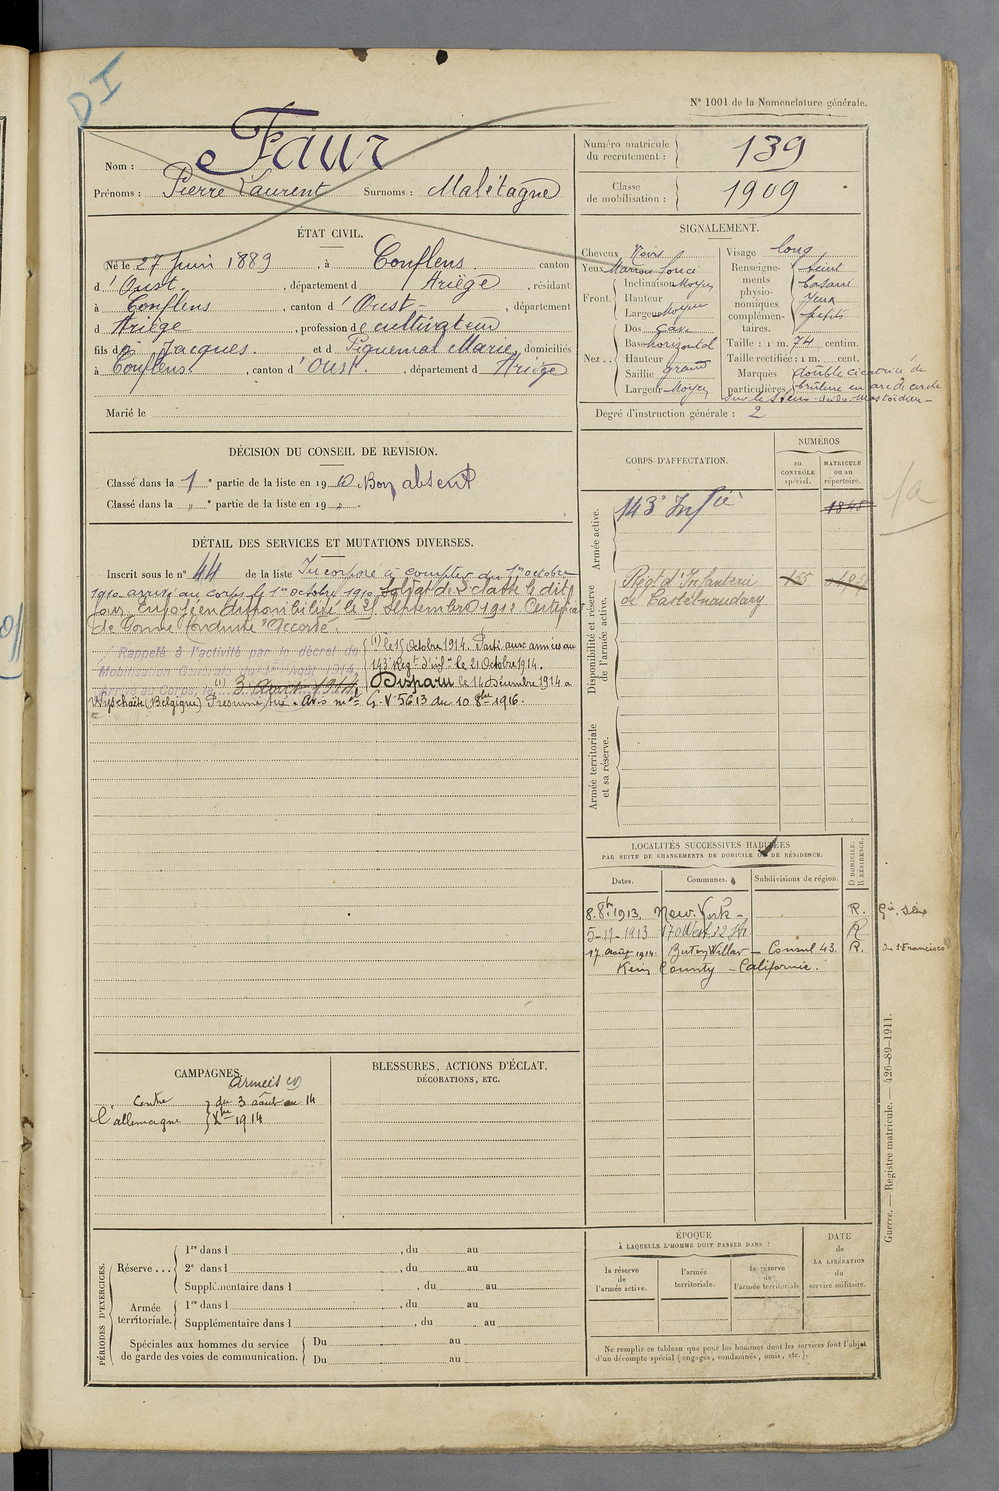 DI
N° 1001 de la Nomenclature générale.
Nom : Faur
Prénoms : Pierre Laurent Surnoms : Malétagne
Numéro matricule du recrutement : 139
Classe de mobilisation : 1909
ÉTAT CIVIL.
Né le 27 Juin 1889, à Conflens canton
d'Oust, département d Ariège, résidant
à Conflens, canton d'Oust, département
d Ariège, profession de cultivateur
fils de Jacques et d Piquemal Marie, domiciliés
à Conflens, canton d'Oust, département d Ariège
Marié le
SIGNALEMENT.
Cheveux Noirs
Yeux Marron foncé
Front. Inclinaison Moyen
Hauteur
Largeur Moyen
Nez. Dos Cave
Base horizontal
Hauteur
Saillie grand
Largeur Moyen
Visage long
Renseignements physionomiques complémentaires. teint basané Yeux petits
Taille : 1 m. 74 centim.
Taille rectifiée : 1 m. cent.
Marques particulières double cicatrice de
brûlure en arc de cercle
Degré d'instruction générale : 2
DÉCISION DU CONSEIL DE REVISION.
Classé dans la 1 e partie de la liste en 1910. Bon absent
Classé dans la " e partie de la liste en 19 ".
CORPS D'AFFECTATION.
NUMÉROS
au CONTRÔLE spécial.
MATRICULE ou au répertoire.
Armée active.
143e Inf ie
1848
Disponibilité et réserve de l'armée active.
Régt d'Infanterie
de Castelnaudary
Armée territoriale et sa réserve.
DÉTAIL DES SERVICES ET MUTATIONS DIVERSES.
Inscrit sous le n° 44 de la liste Incorporé à compter du 1er octobre
1910 arrivé au corps le 1er octobre 1910 Soldat de 2e classe le dit
jour. Envoyé en disponibilité le 25 Septembre 1912 Certificat
de Bonne Conduite "Accordé".
Rappelé à l'activité par le décret de
Mobilisation Générale du 1er Août 1914.
Arrivé au Corps, le (1) 3 Août 1914.
(1) le 15 Octobre 1914. Parti aux armées au
143e Régt d'inf ie le 21 Octobre 1914.
Disparu le 14 Décembre 1914 à
Wyschaëte (Belgique) Présumé tué. Avis mel G. V 5613 du 10 8bre 1916.
LOCALITÉS SUCCESSIVES HABITÉES
PAR SUITE DE CHANGEMENTS DE DOMICILE OU DE RÉSIDENCE.
Dates.
Communes.
Subdivisions de région.
D DOMICILE. R RÉSIDENCE.
8.8bre 1913. New-York - R.
5-11-1913 170 West 32 Str R
17 Août 1914. Button Willow - Consul 43. R. de St Francisco
Kern County - Californie.
CAMPAGNES.
Contre l'allemagne
Armées
du 3 août au 14
Xbre 1914
BLESSURES, ACTIONS D'ÉCLAT,
DÉCORATIONS, ETC.
PÉRIODES D'EXERCICES.
Réserve... 1re dans l , du au
2e dans l , du au
Supplémentaire dans l , du au
Armée territoriale. 1re dans l , du au
Supplémentaire dans l , du au
Spéciales aux hommes du service de garde des voies de communication. Du au
Du au
ÉPOQUE
À LAQUELLE L'HOMME DOIT PASSER DANS :
la réserve de l'armée active.
l'armée territoriale.
la réserve de l'armée territoriale.
DATE de LA LIBÉRATION du service militaire.
Ne remplir ce tableau que pour les hommes dont les services font l'objet
d'un décompte spécial (engagés, condamnés, omis, etc.).
Guerre. — Registre matricule. — 426-89-1911.